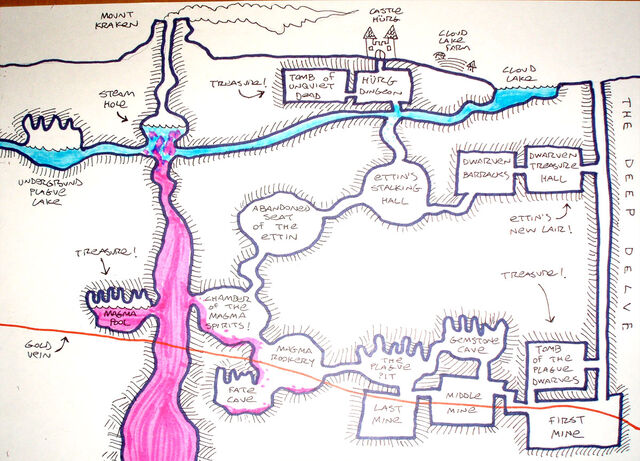 MOUNT
KRAKEN
CASTLE
HÜRG
CLOUD
LAKE
FARM
CLOUD
LAKE
TREASURE!
TOMB OF
UNQUIET
DEAD
HÜRG
DUNGEON
STEAM
HOLE
UNDERGROUND
PLAGUE
LAKE
ETTIN'S
STALKING
HALL
DWARVEN
BARRACKS
DWARVEN
TREASURE
HALL
ETTIN'S
NEW LAIR!
THE DEEP DELVE
ABANDONED
SEAT
OF THE
ETTIN
TREASURE!
MAGMA
POOL
CHAMBER
OF THE
MAGMA
SPIRITS!
GOLD
VEIN
FATE
CAVE
MAGMA
ROOKERY
THE
PLAGUE
PIT
GEMSTONE
CAVE
TREASURE!
TOMB
OF THE
PLAGUE
DWARVES
LAST
MINE
MIDDLE
MINE
FIRST
MINE